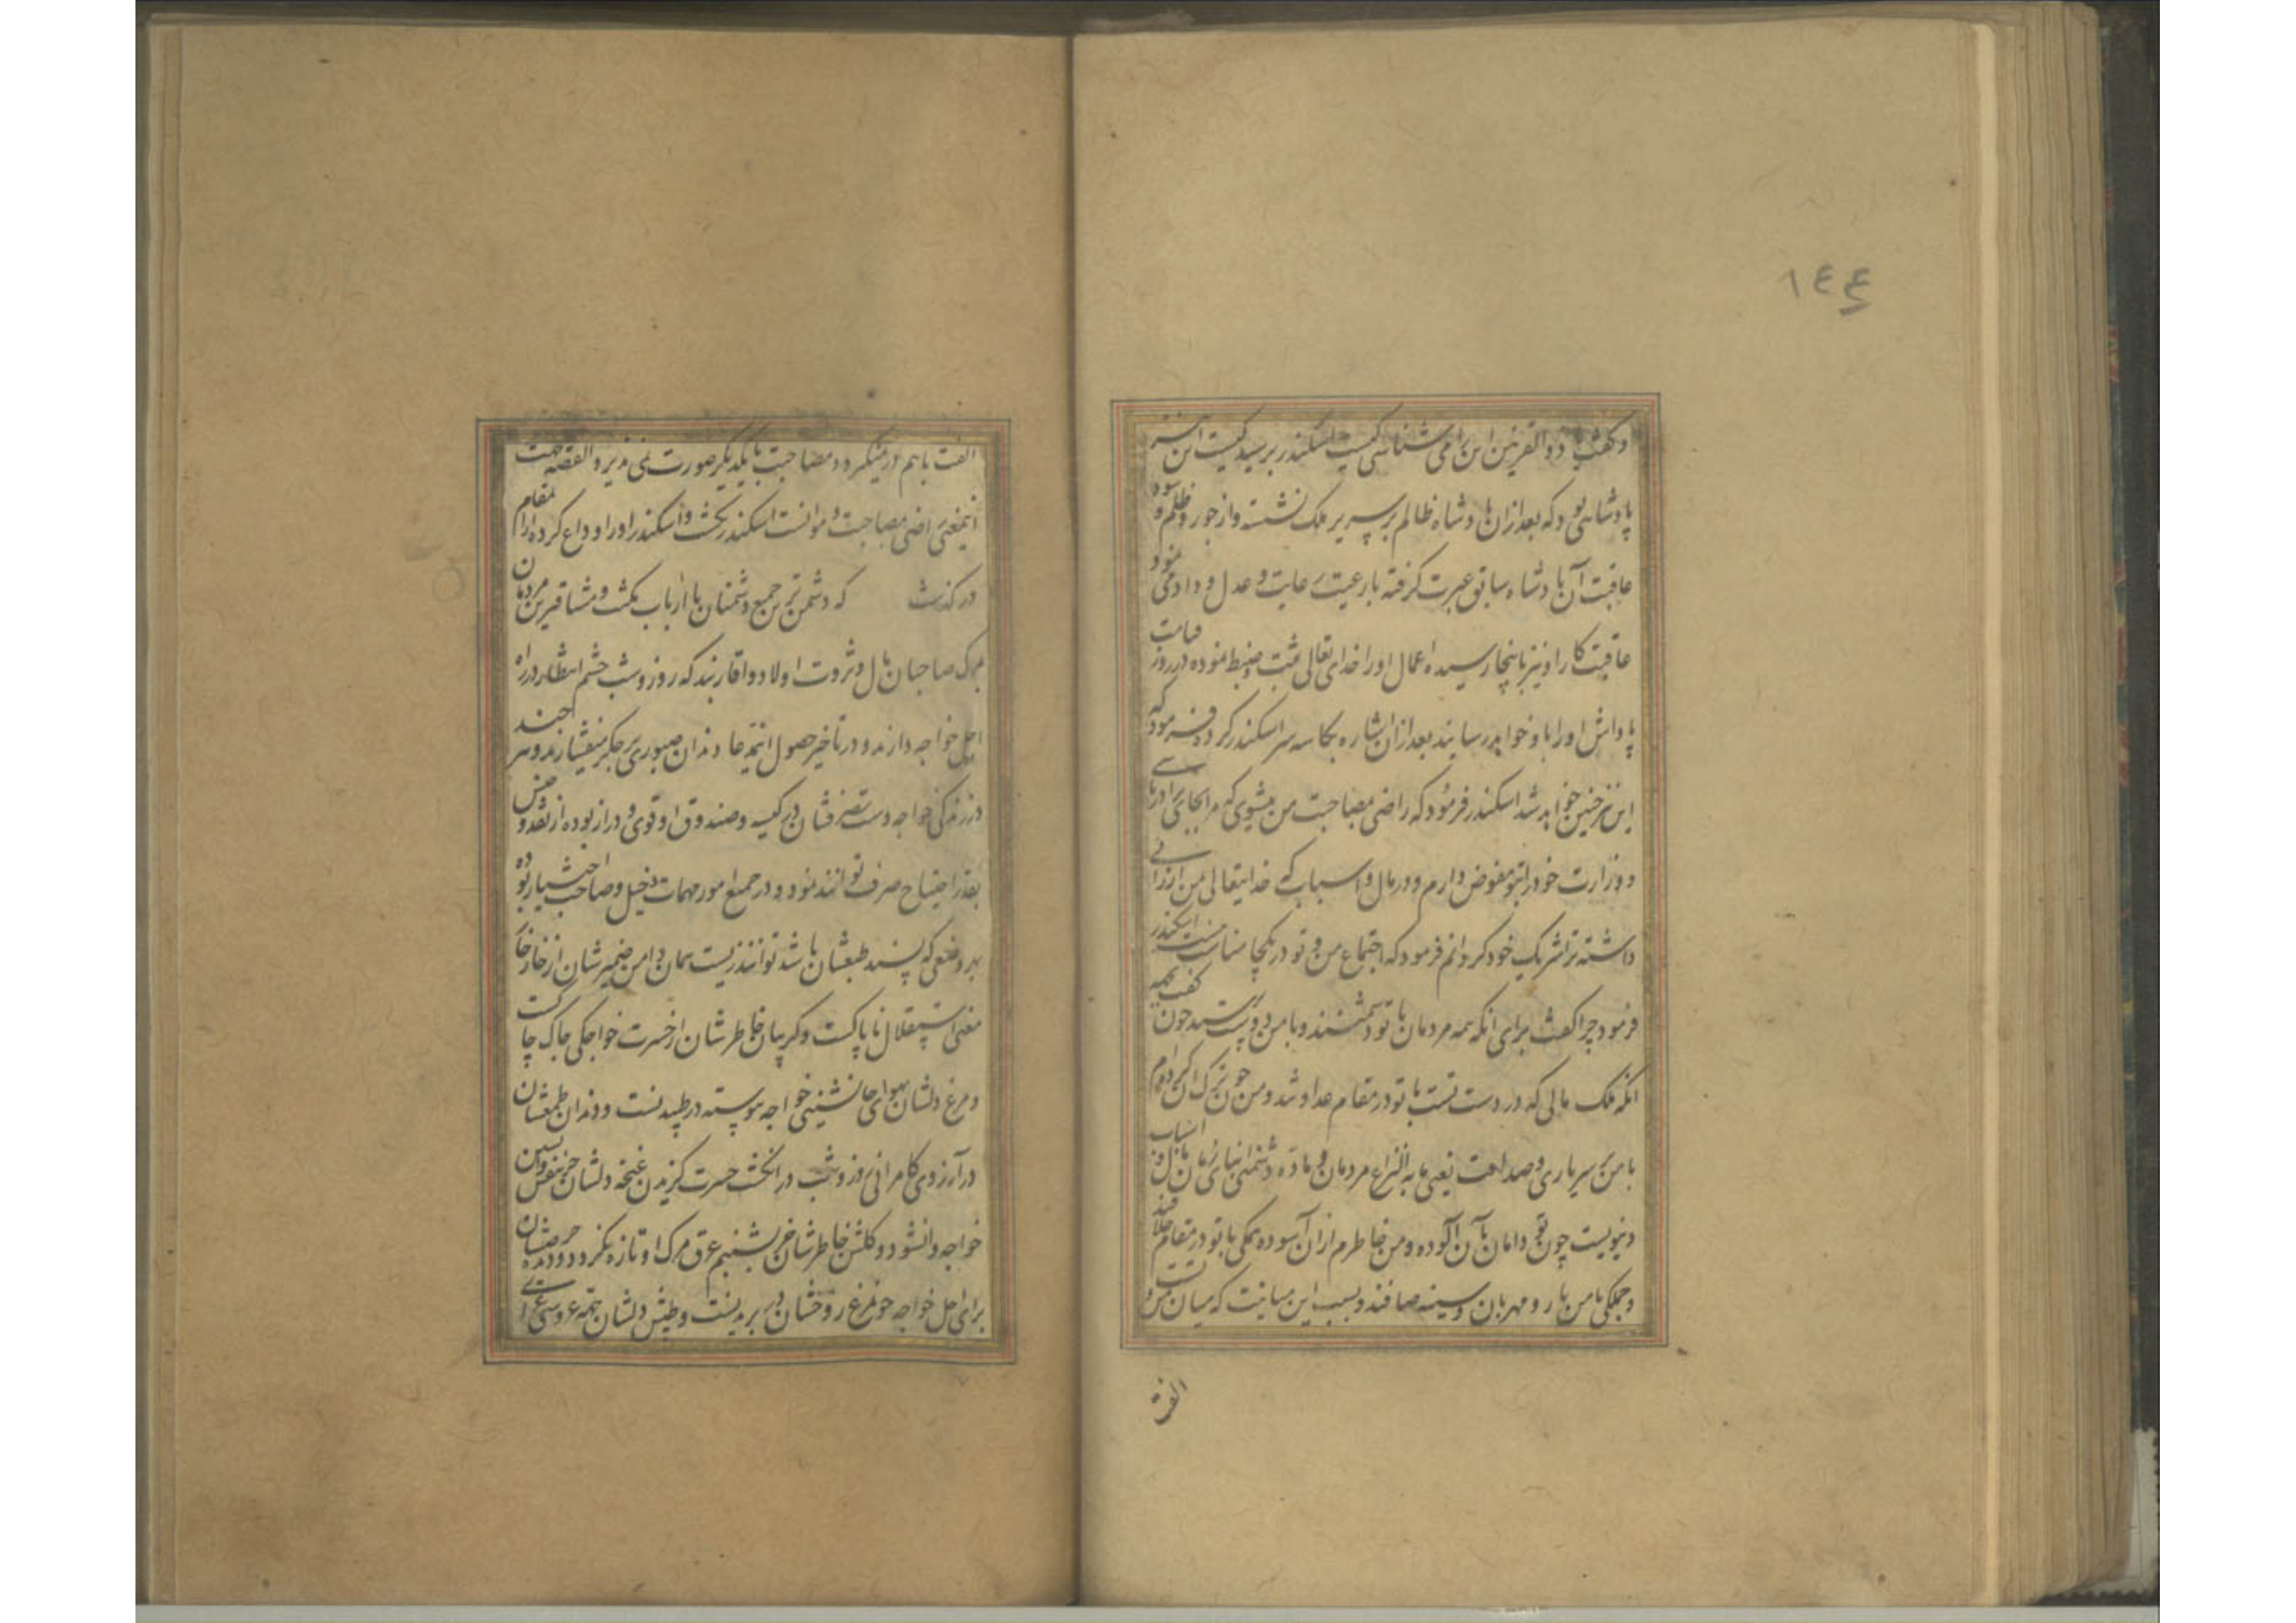 ١٤٤
و گفت یا ذوالقرنین این را می شناسی کیست اسکندر پرسید کیست این نیز
پادشاهی بود که بعد ازان پادشاه ظالم بر سریر ملک نشسته و از جور و ظلم و سوء
عاقبت آن پادشاه سابق عبرت گرفته با رعیت رعایت و عدل و داد می نمود
عاقبت کار او نیز باینجا رسیده اعمال او را خدای تعالی ثبت و ضبط نموده در روز قیامت
پاداش او را باو خواهد رسانید بعد ازان اشاره بکاسه سر اسکندر کرد و فرمود که
این نیز چنین خواهد شد اسکندر فرمود که راضی مصاحبت من میشوی که
و وزارت خود را بتو مفوض دارم و در مال و اسباب که خدایتعالی بمن ارزانی
داشته ترا شریک خود گردانم فرمود که اجتماع من و تو در یکجا مناسب نیست اسکندر
فرمود چرا گفت برای آنکه همه مردمان با تو دشمنند و با من دوست پرسید چون گفت بجهة
آنکه ملک و مالی که در دست تست با تو در مقام عداوتند و من چون ترک آن کرده ام
با من بر سر یاری و صداقت یعنی مایه نزاع مردمان و ماده دشمنی ابنای زمان مال و اسباب
دنیویست چون تو دامان بآن آلوده و من خاطرم ازان آسوده همگی با تو در مقام خلافند
و جملگی با من یار و مهربان و سینه صافند و بسبب این مباینت که میان من و تست
الفت
الفت با هم در نمیگیرد و مصاحبت با یکدیگر صورت نمی پذیرد القصه بجهت
اینمعنی راضی مصاحبت و موانست اسکندر نگشت و اسکندر او را وداع کرده ازان مقام
در گذشت که دشمن ترین جمیع دشمنان با ارباب مکنت و مشتاقترین مردمان
بمرگ صاحبان مال و ثروت اولاد و اقاربند که روز و شب چشم انتظار در راه
اجل خواجه دارند و در تاخیر حصول اینمدعا دندان صبوری بر جگر میفشارند و هر چند
در زندگی خواجه دست تصرفشان در کیسه و صندوق او قوی و دراز بوده از نقد و جنس
بقدر احتیاج صرف توانند نمود و در جمیع امور مهمات دخیل و صاحب اختیار بوده
بهر وضعی که پسند طبعشان باشد توانند زیست همان دامن ضمیرشان از خار خار
معنی استقلال ناپاکست و گریبان خاطرشان از حسرت خواجگی چاک چاکست
و مرغ دلشان بهوای جانشینی خواجه پیوسته در طپیدنست و دندان طمعشان
در آرزوی کامرانی روز و شب در انگشت حسرت گزیدن غنچه دلشان جز بنفس واپسین
خواجه وا نشود و گلشن خاطرشان جز بشبنم عرق مرگ او تازه نگردد و دیده حرصشان
برای اجل خواجه چو مرغ روحشان در پریدنست و طپش دلشان